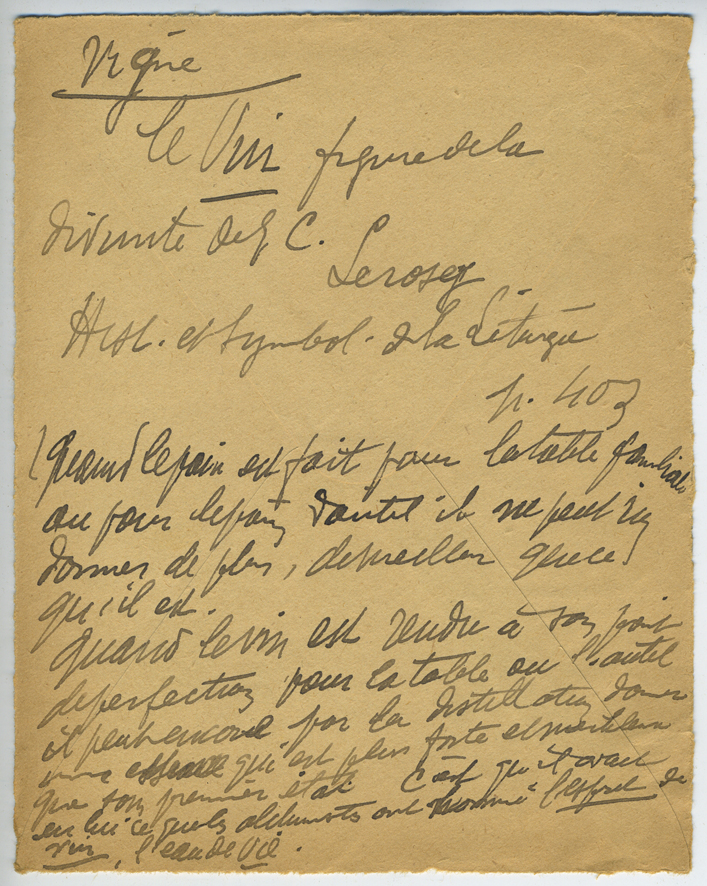 Vigne
le Vin figure de la
divinité de J. C.
Lerosey
Hist. et Symbol. de la Liturgie
p. 403
Quand le pain est fait pour la table familiale
ou pour le pain d'autel il ne peut rien
donner de plus, de meilleur que ce
qu'il est.
Quand le vin est rendu à son point
de perfection pour la table ou l'autel
il peut encore par la distillation donner
une essence qui est plus forte et meilleure
que son premier état. C'est qu'il avait
en lui ce que les alchimistes ont nommé l'esprit de
vin, l'eau de vie.